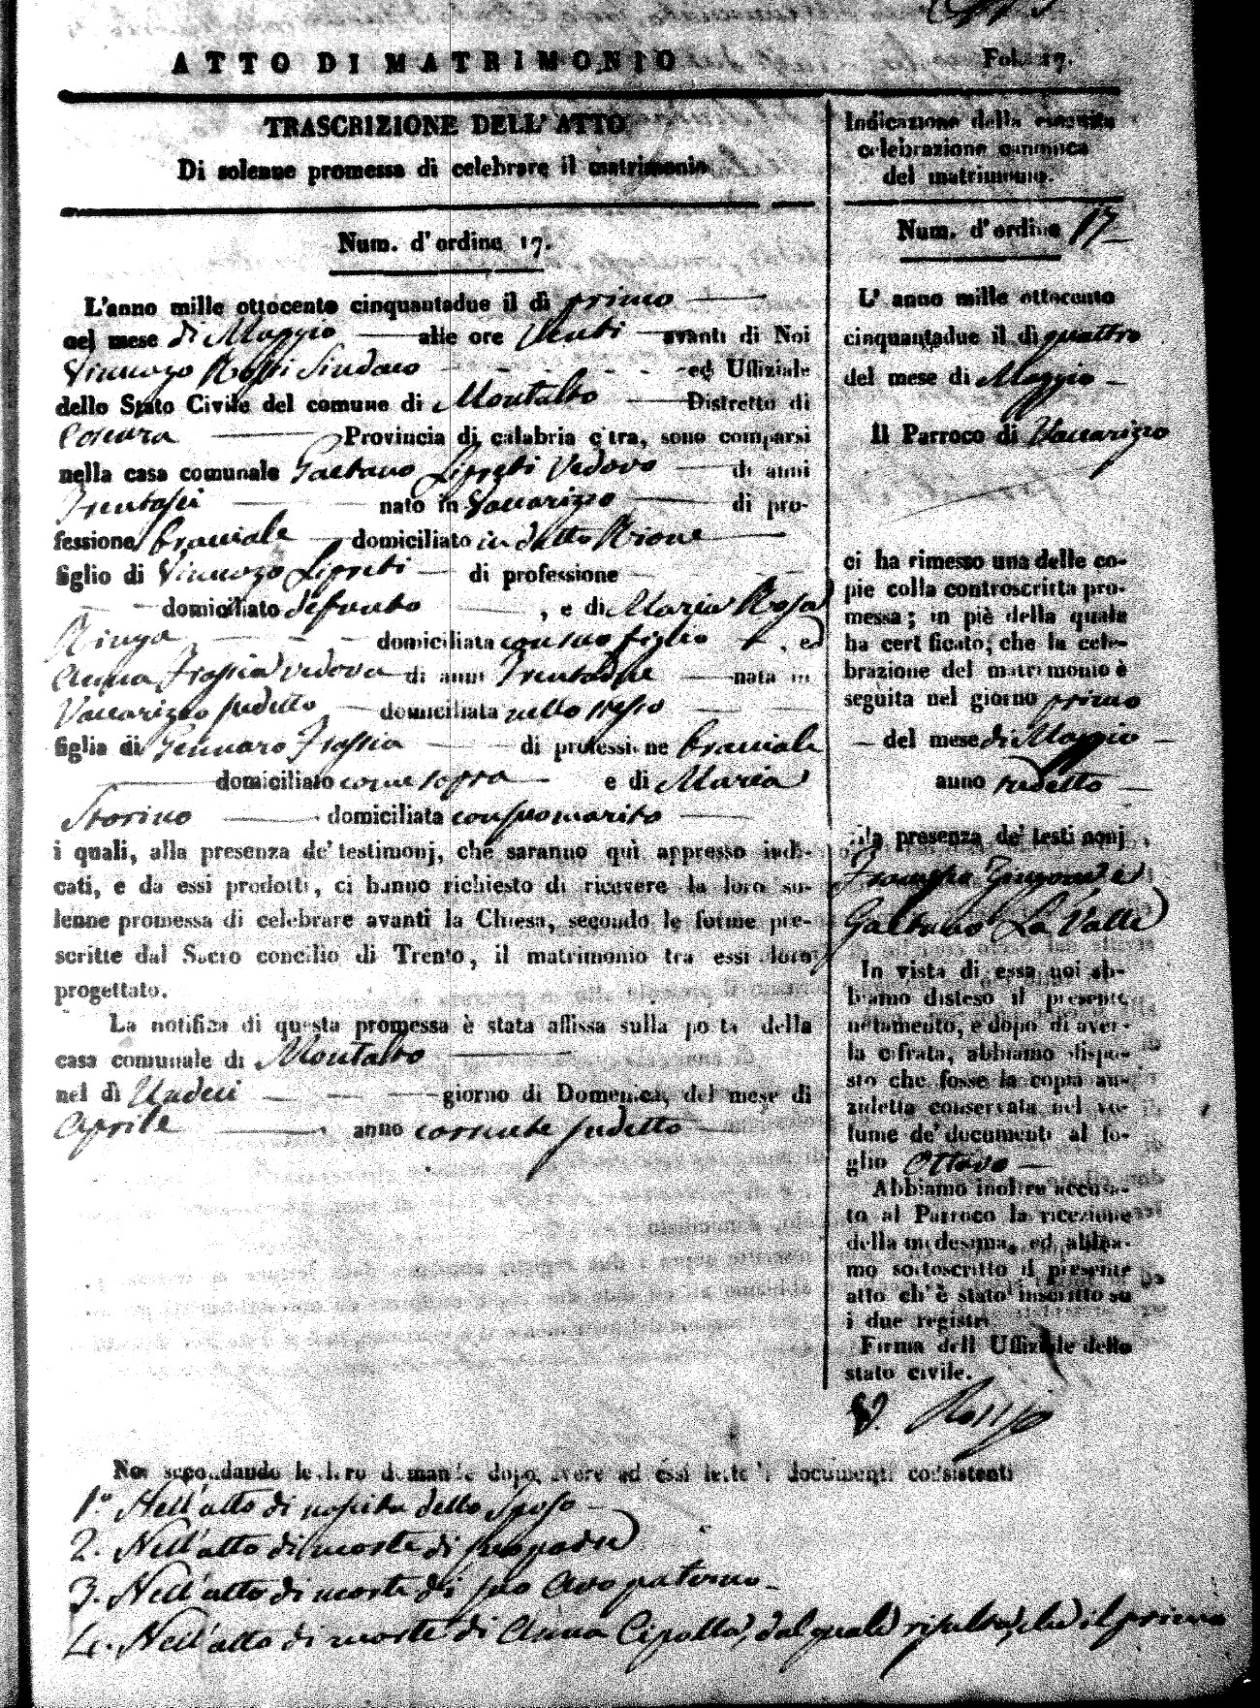 ATTO DI MATRIMONIO
Fol. 17.
TRASCRIZIONE DELL'ATTO
Di solenne promessa di celebrare il matrimonio
Num. d'ordine 17.
L'anno mille ottocento cinquantadue il dì primo
nel mese di Maggio alle ore Venti avanti di Noi
Vincenzo Rossi Sindaco ed Uffiziale
dello Stato Civile del comune di Montalto Distretto di
Cosenza Provincia di calabria citra, sono comparsi
nella casa comunale Gaetano Vedovo di anni
Trentasei nato in Vaccarizzo di pro-
fessione bracciale domiciliato in detto Rione
figlio di Vincenzo di professione
domiciliato defunto, e di Maria Rosa
domiciliata con suo figlio, ed
Anna Frassia vedova di anni nata in
Vaccarizzo sudetto domiciliata nello stesso
figlia di Gennaro Frassia di professione bracciale
domiciliato come sopra e di Maria
Storino domiciliata con suo marito
i quali, alla presenza de' testimonj, che saranno qui appresso indi-
cati, e da essi prodotti, ci hanno richiesto di ricevere la loro so-
lenne promessa di celebrare avanti la Chiesa, secondo le forme pre-
scritte dal Sacro concilio di Trento, il matrimonio tra essi loro
progettato.
La notifica di questa promessa è stata affissa sulla porta della
casa comunale di Montalto
nel dì Undeci giorno di Domenica, del mese di
Aprile anno corrente sudetto
Indicazione della eseguita
celebrazione canonica
del matrimonio.
Num. d'ordine 17
L'anno mille ottocento
cinquantadue il dì quattro
del mese di Maggio
Il Parroco di Vaccarizzo
ci ha rimesso una delle co-
pie colla controscritta pro-
messa; in piè della quale
ha certificato, che la cele-
brazione del matrimonio è
seguita nel giorno primo
del mese di Maggio
anno sudetto
alla presenza de' testimonj
Gaetano La Valle
In vista di essa noi ab-
biamo disteso il presente
notamento, e dopo di aver-
la cifrata, abbiamo dispo-
sto che fosse la copia an-
zidetta conservata nel vo-
lume de' documenti al fo-
glio Ottavo
Abbiamo inoltre accusa-
to al Parroco la ricezione
della medesima, ed abbia-
mo sottoscritto il presente
atto ch'è stato inscritto su
i due registri
Firma dell Uffiziale dello
stato civile.
V. Rossi
Noi secondando le loro domande dopo avere ad essi lette i documenti consistenti
1.º Nell'atto di nascita dello Sposo
2. Nell'atto di morte di suo padre
3. Nell'atto di morte di suo Avo paterno
4. Nell'atto di morte di Anna Cipolla, dal quale risulta, che il primo